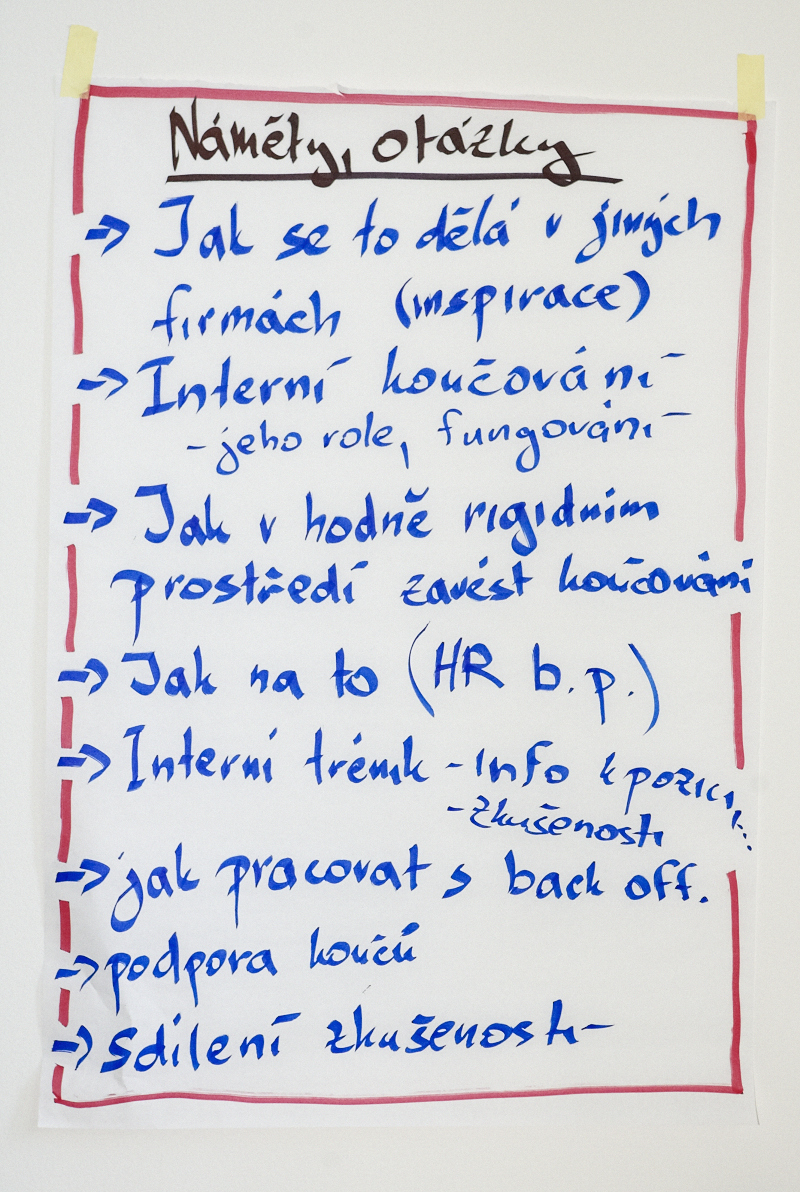 Náměty, otázky
→ Jak se to dělá v jiných
firmách (inspirace)
→ Interní koučování
- jeho role, fungování
→ Jak v hodně rigidním
prostředí zavést koučování
→ Jak na to (HR b.p.)
→ Interní trénink - info k pozici, k...
- zkušenosti
→ jak pracovat s back off.
→ podpora koučů
→ Sdílení zkušenosti